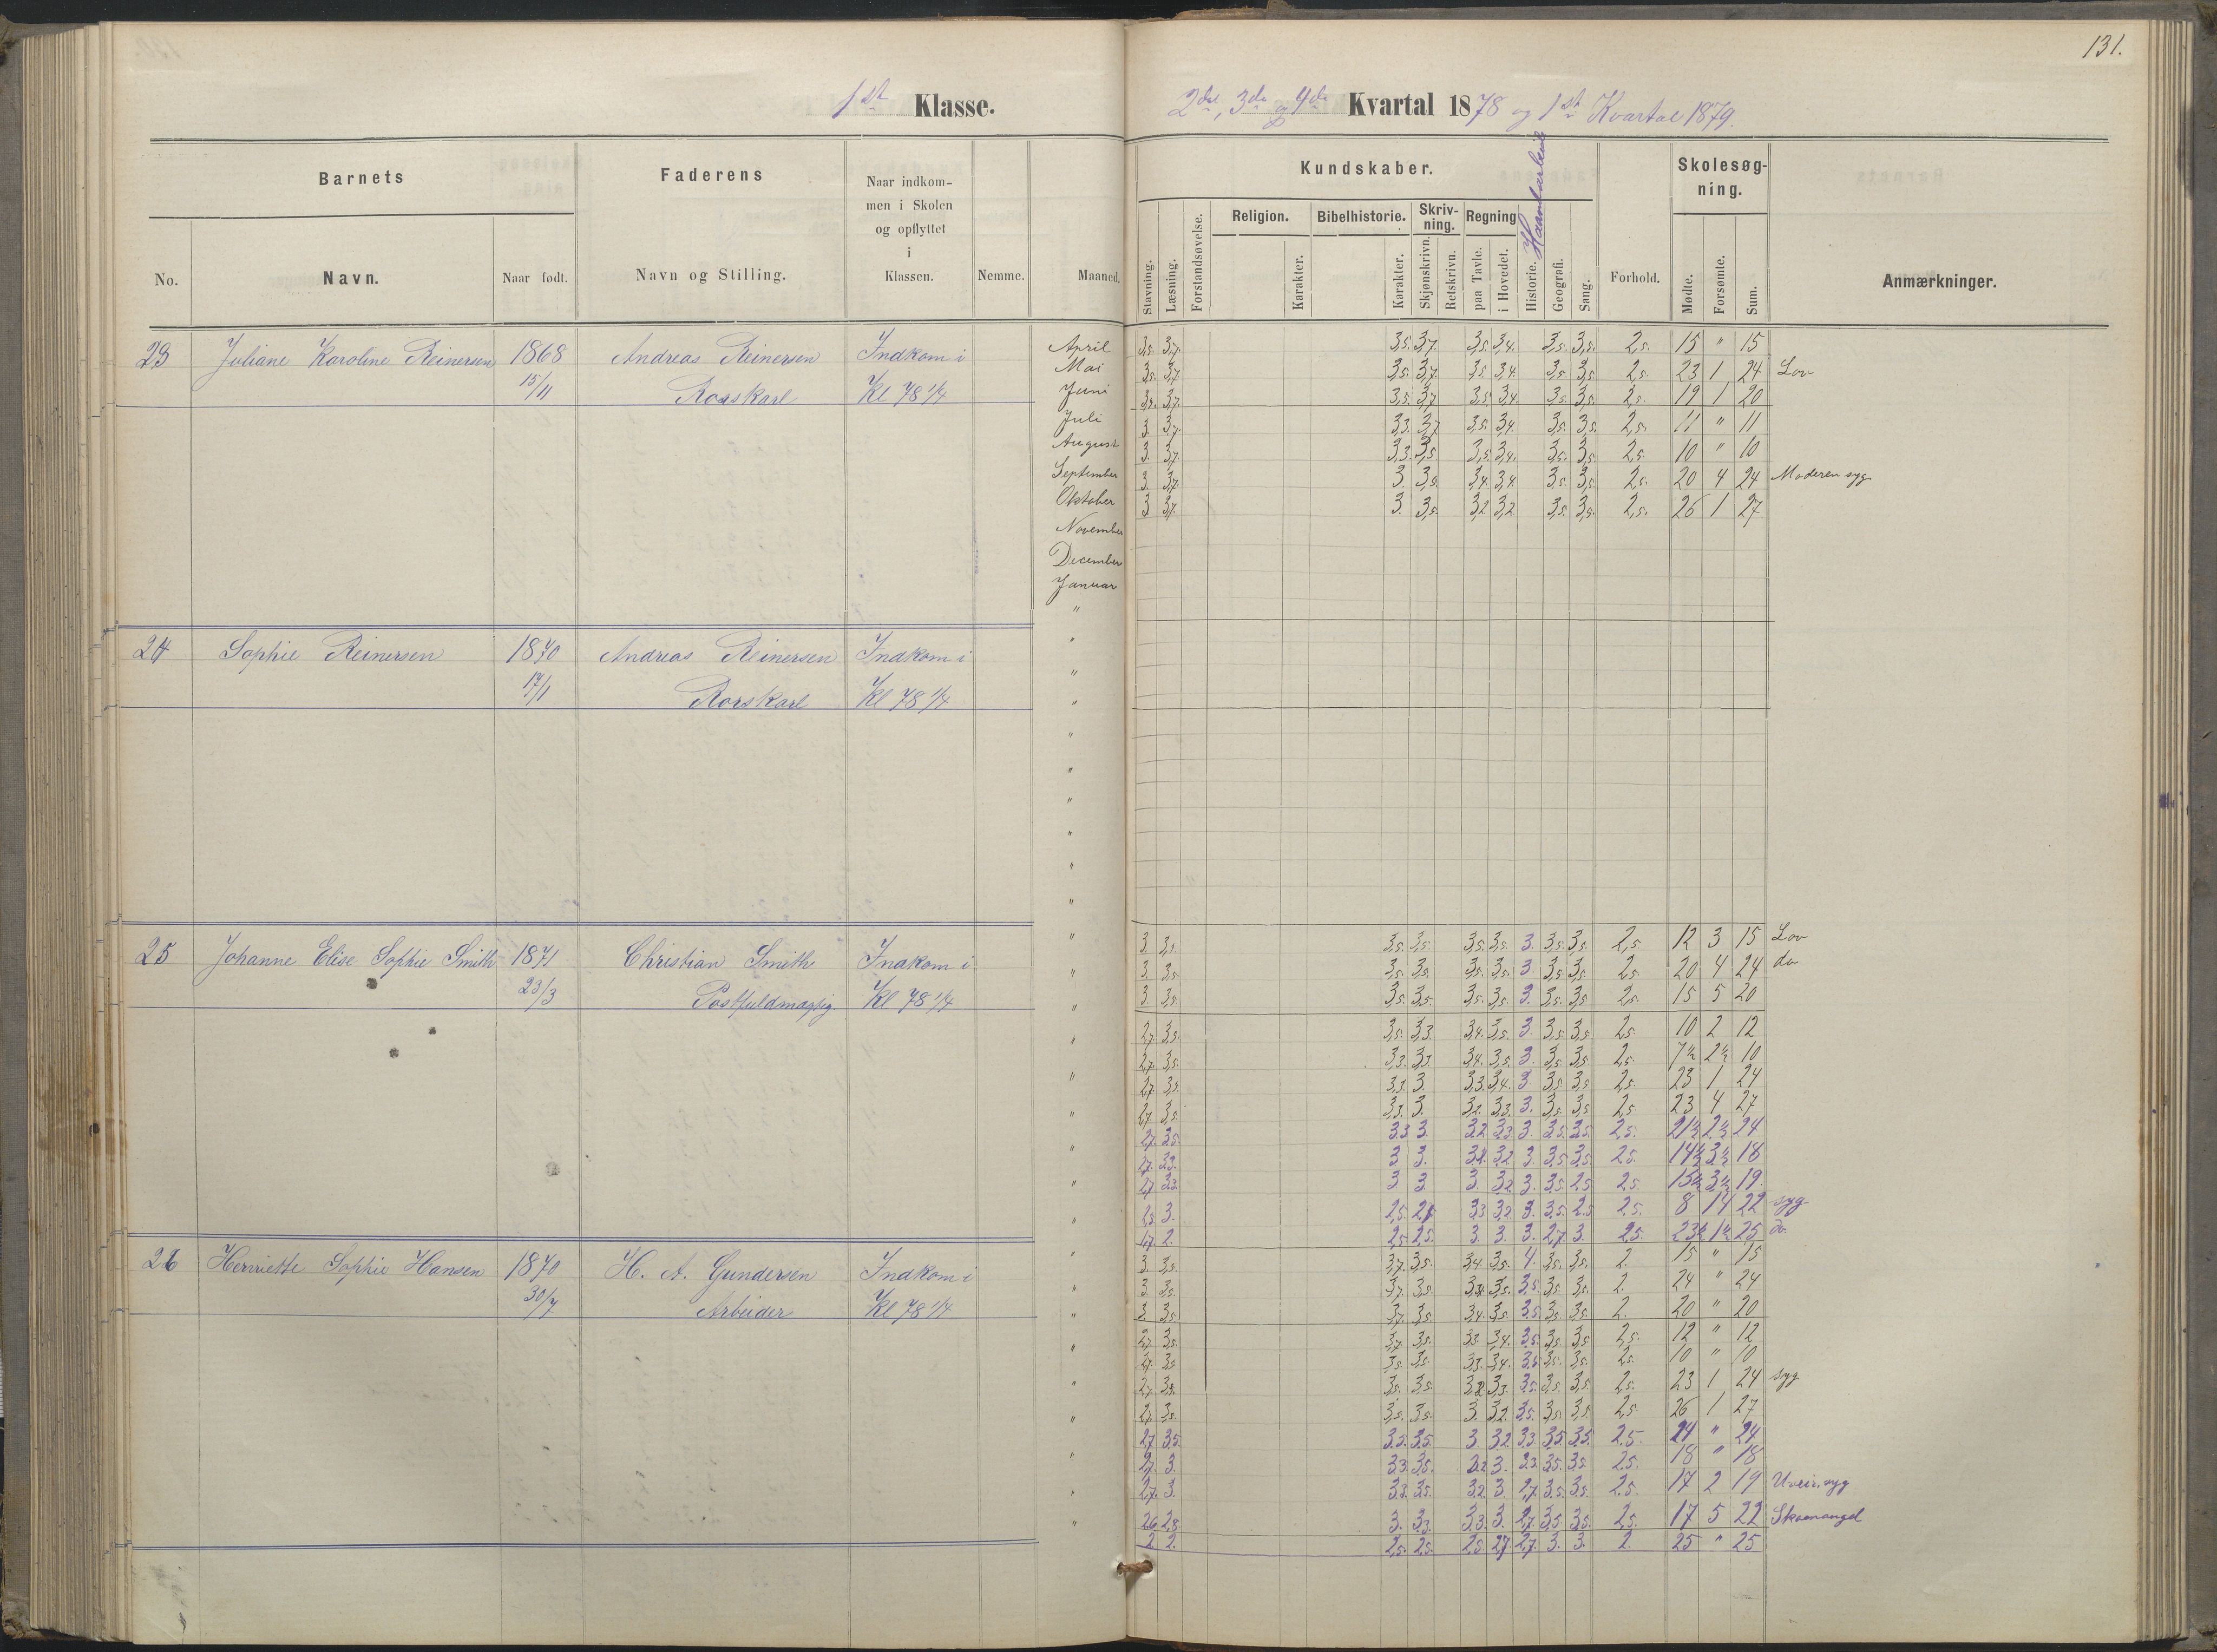 131.
1ste Klasse.
2det, 3de og 4de Kvartal 1878 og 1ste Kvartal 1879.
Barnets
Faderens
Naar indkom-
men i Skolen
og opflyttet
i
Klassen.
Nemme.
Maaned.
No.
Navn.
Naar født.
Navn og Stilling.
Kundskaber.
Skolesøg-
ning.
Stavning.
Læsning.
Forstandsøvelse.
Religion.
Karakter.
Bibelhistorie.
Karakter.
Skriv-
ning.
Skjønskrivn.
Retskrivn.
Regning
paa Tavle.
i Hovedet.
Historie. Haandarbeide
Geografi.
Sang.
Forhold.
Mødte.
Forsømte.
Sum.
Anmærkninger.
23 Juliane Karoline Reinersen 1868 Andreas Reinersen Indkom i
15/11 Rorskarl Kl 78 1/4
April 3,5. 3,7. 3,5. 3,7. 3,5. 3,4. 3,5. 3,5. 2,5. 15 " 15
Mai 3,5. 3,7. 3,5. 3,7. 3,5. 3,4. 3,5. 3,5. 2,5. 23 1 24 Lov
Juni 3,7. 3,5. 3,7. 3,5. 3,4. 3,5. 3,5. 2,5. 19 1 20
Juli 3. 3,7. 3,3. 3,7 3,5. 3,4. 3,5. 3,5. 2,5. 11 " 11
August 3. 3,7. 3,3. 3,5 3,5. 3,4. 3,5. 3,5. 2,5. 10 " 10
September 3. 3,7. 3. 3,5. 3,4. 3,4. 3,5. 3,5. 2,5. 20 4 24 Moderen syg
Oktober 3 3,7. 3. 3,5. 3,2 3,2. 3,5. 3,5. 2,5. 26 1 27
November
December
Januar
"
24 Sophie Reinersen 1870 Andreas Reinersen Indkom i
17/1 Rorskarl Kl 78 1/4
25 Johanne Elise Sophie Smith 1871 Christian Smith Indkom i
23/3 Postfuldmægtig Kl 78 1/4
3. 3,5. 3,5. 3,5. 3,5. 3,5. 3. 3,5. 3,5. 2,5. 12 3 15 Lov
3. 3,5. 3,5. 3,5. 3,5. 3,5. 3. 3,5. 3,5. 2,5. 20 4 24 do
3. 3,5. 3,5. 3,5. 3,5. 3,5. 3. 3,5. 3,5 2,5. 15 5 20
2,7. 3,5. 3,5. 3,3. 3,4. 3,5. 3 3,5. 3,5 2,5. 10 2 12
2,7. 3,5. 3,3. 3,3. 3,4. 3,5. 3. 3,5. 3,5. 2,5. 7½ 2½ 10
2,7. 3,5. 3,3. 3. 3,3. 3,4. 3. 3,5 3,5 2,5. 23 1 24
2,7. 3,5. 3,3. 3. 3,2. 3,3. 3. 3,5. 3,5 2,5. 23 4 27
2,7. 3,5. 3,3 3. 3,2 3,3 3. 3,5. 3,5. 2,5. 21½ 2½ 24
2,7. 3,3. 3 3. 3,2. 3,2 3. 3,5 3,5. 2,5. 14½ 3½ 18
2,7 3,3. 3. 3 3. 3,2 3. 3,5 2,5 2,5. 15½ 3½ 19
3. 3,3 3,2 3. 3,5. 2,5 2,5. 8 14 22 syg
2. 2,5 2,5. 3. 3. 3. 2,7 3. 2,5. 23½ 1½ 25 do
26 Henriette Sophie Hansen 1870 H. A. Gundersen Indkom i
30/7 Arbeider Kl 78 1/4
3. 3,5. 3,7. 3,5. 3,4 3,5. 4. 3,5. 3,5. 2. 15 " 15
3. 3,5. 3,7. 3,5. 3,5. 3,5 3,5 3,5. 2. 24 " 24
3. 3,5. 3,7. 3,5. 3,4. 3,5. 3,5 3,5 3,5. 2. 20 " 20
2,7. 3,5. 3,7. 3,5. 3,3. 3,4. 3,5. 3,5. 3,5 2,5. 12 " 12
2,7. 3,5 3,5. 3,5. 3,3. 3,4. 3,5. 3,5. 2,5. 10 " 10
2,7. 3,5. 3,5. 3,5. 3,3. 3,5. 3,5. 3,5. 2,5. 23 1 24 syg
2,7. 3,5. 3,5. 3,5. 3. 3,2. 3,5. 3,5 3,5 2,5 26 1 27
2,7. 3,5. 3,5. 3,5. 3 3,2 3,3 3,5 3,5. 2,5. 24 " 24
2,7. 3. 3,3. 3,5. 3. 3,5. 3,5. 2,5. 18 " 18
2,7. 3. 3,3. 3,5. 3,2 3 2,7. 3,5. 3,5. 2,5. 17 2 19 Uveir, syg
2,6 2,8 3. 3,3. 3,3. 3. 2,7. 3,5 3,5. 2,5. 17 5 22 Skomangel
2 2. 2,5. 2,5. 2,5 2,7 2,7. 3. 3. 2. 25 " 25